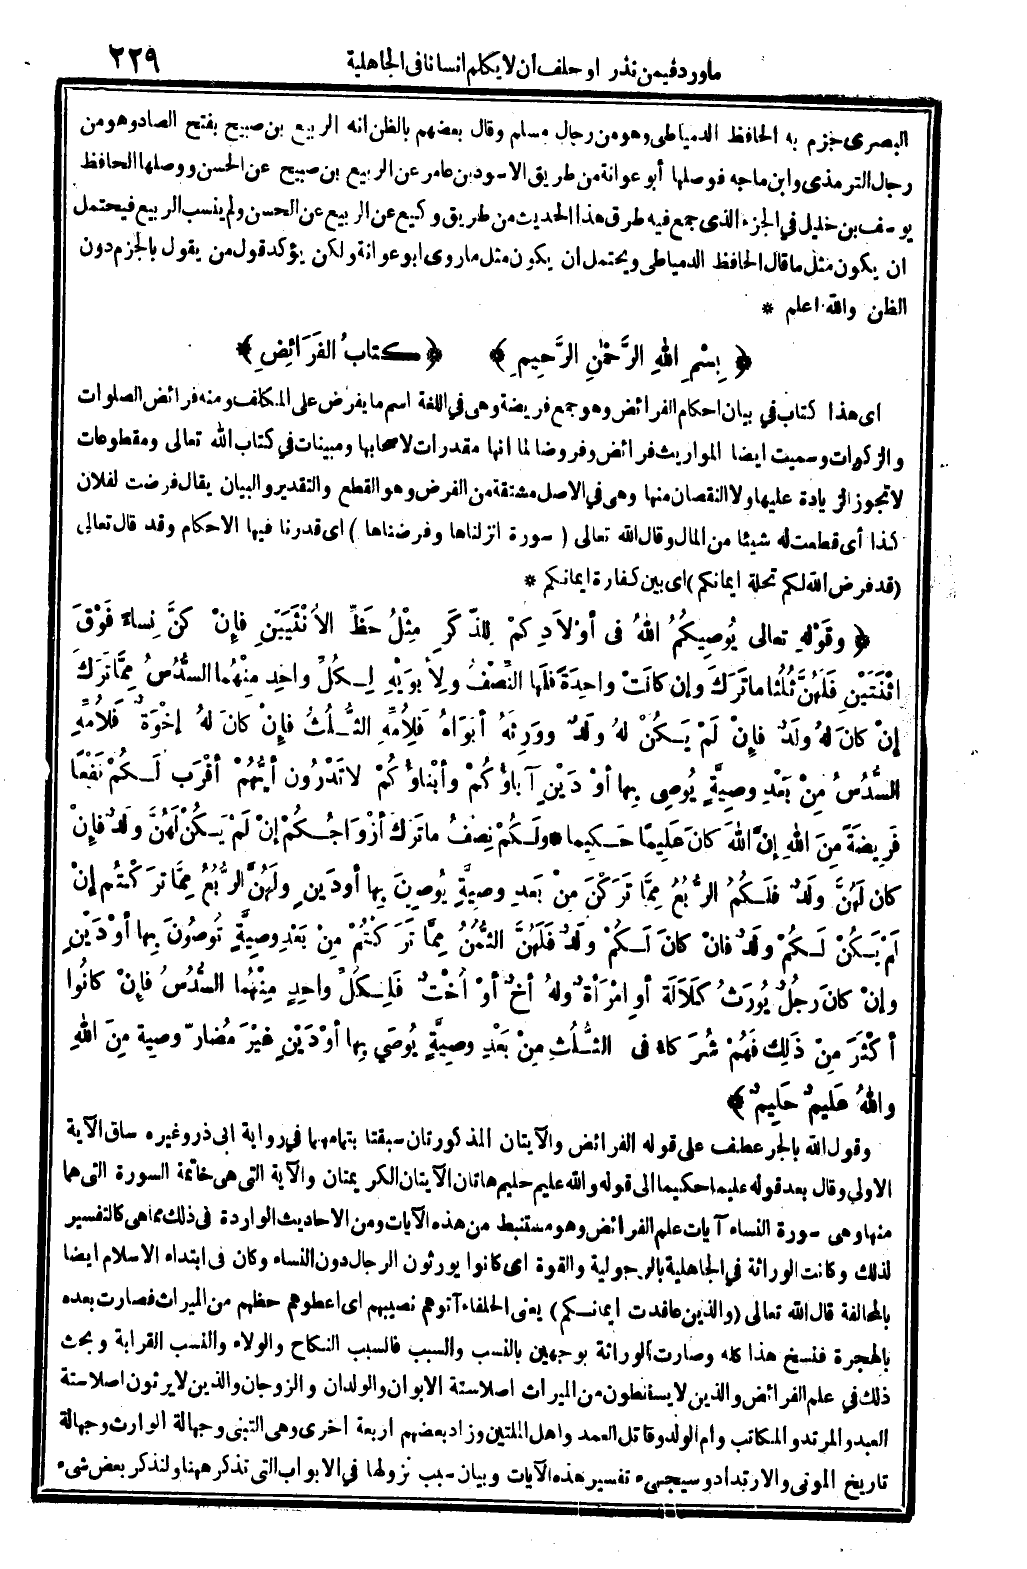 ماورد فيمن نذر او حلف أن لا يكلم انسانا فى الجاهلية ٢٢٩
البصرى جزم به الحافظ الدمياطى وهو من رجال مسلم وقال بعضهم بالظن انه الربيع بن صبيح بفتح الصاد وهو من
رجال الترمذى وابن ماجه فوصلها أبو عوانة من طريق الاسود بن عامر عن الربيع بن صبيح عن الحسن ووصلها الحافظ
يوسف بن خليل في الجزء الذى جمع فيه طرق هذا الحديث من طريق وكيع عن الربيع عن الحسن ولم ينسب الربيع فيحتمل
ان يكون مثل ما قال الحافظ الدمياطى ويحتمل ان يكون مثل ماروى ابو عوانة ولكن يؤكد قول من يقول بالجزم دون
الظن والله اعلم *
﴿ بِسْمِ اللهِ الرَّحْمٰنِ الرَّحِيمِ ﴾ ﴿ كتابُ الفَرَائِضِ ﴾
اى هذا كتاب في بيان احكام الفرائض وهو جمع فريضة وهى في اللغة اسم ما يفرض على المكلف ومنه فرائض الصلوات
والزكوات وسميت ايضا المواريث فرائض وفروضا لما انها مقدرات لاصحابها ومبينات في كتاب الله تعالى ومقطوعات
لا تجوز الزيادة عليها ولا النقصان منها وهى في الاصل مشتقة من الفرض وهو القطع والتقدير والبيان يقال فرضت لفلان
كذا أى قطعت له شيئا من المال وقال الله تعالى ( سورة انزلناها وفرضناها ) اى قدرنا فيها الاحكام وقد قال تعالى
(قد فرض الله لكم تحلة ايمانكم) اى بين كفارة ايمانكم *
﴿ وقَوْلِهِ تعالى يُوصِيكُمُ اللهُ فى أوْلاَدِكمْ لِلذَّكَرِ مِثْلُ حَظِّ الأُنْثَيَيْنِ فإِنْ كنَّ نِساءً فَوْقَ
اثْنَتَيْنِ فَلَهُنَّ ثُلُثا ماتَرَكَ وإن كانَتْ واحِدَةً فلَها النِّصْفُ ولِأبَوَيْهِ لِكُلِّ واحِدٍ مِنْهُما السُّدُسُ مِمَّا تَرَكَ
إنْ كانَ لهُ ولَدٌ فإِنْ لَمْ يَكُنْ لهُ ولَدٌ ووَرِثَهُ أبَوَاهُ فَلِأُمِّهِ الثُّلُثُ فإِنْ كانَ لهُ إخْوَةٌ فَلِأُمِّهِ
السُّدُسُ مِنْ بَعْدِ وصِيَّةٍ يُوصِى بِها أوْ دَيْنٍ آباؤُكُمْ وأبْناؤُكُمْ لا تَدْرُون أيُّهُمْ أقْرَب لَكُمْ نَفْعًا
فَرِيضَةً مِنَ اللهِ إنَّ اللهَ كانَ عَلِيمًا حَكِيما * ولَكُمْ نِصْفُ ماتَرَكَ أزْواجُكُمْ إنْ لَمْ يَكُنْ لَهُنَّ ولَدٌ فإِنْ
كان لَهُنَّ ولَدٌ فلَكُمُ الرُّبُعُ مِمَّا تَرَكْنَ مِنْ بَعدِ وصِيَّةٍ يُوصِينَ بِها أو دَينٍ ولَهُنَّ الرُّبُعُ مِمَّا تَرَكْتُم إنْ
لَمْ يَكُنْ لَكُمْ ولَدٌ فانْ كانَ لَكُمْ ولَدٌ فَلَهُنَّ الثُّمُنُ مِمَّا تَرَكْتُمْ مِنْ بَعْدِ وصِيَّةٍ تُوصُونَ بِها أوْ دَيْنٍ
وإنْ كانَ رجُلٌ يُورَثُ كَلاَلَةً أوِ امْرَأةٌ ولهُ أخٌ أوْ أُخْتٌ فَلِكُلِّ واحِدٍ مِنْهُما السُّدُسُ فإِنْ كانُوا
أكْثَرَ مِنْ ذَلِكَ فَهُمْ شُرَكاءُ فى الثُّلُثِ مِنْ بَعْدِ وصِيَّةٍ يُوصَي بِها أوْ دَيْنٍ غيْرَ مُضارٍّ وصِيةً مِنَ اللهِ
واللهُ عَلِيمٌ حَلِيمٌ ﴾
وقول الله بالجر عطف على قوله الفرائض والآيتان المذكورتان سبقتا بتمامهما في رواية ابى ذر وغيره ساق الآية
الاولي وقال بعد قوله عليما حكيما الى قوله والله عليم حليم هاتان الآيتان الكريمتان والآية التى هى خاتمة السورة التى هما
منها وهى سورة النساء آيات علم الفرائض وهو مستنبط من هذه الآيات ومن الاحاديث الواردة فى ذلك مماهى كالتفسير
لذلك وكانت الوراثة في الجاهلية بالرجولية والقوة اى كانوا يورثون الرجال دون النساء وكان فى ابتداء الاسلام ايضا
بالمحالفة قال الله تعالى (والذين عاقدت ايمانكم) يعنى الحلفاء آتوهم نصيبهم اى اعطوهم حظهم من الميراث فصارت بعده
بالهجرة فنسخ هذا كله وصارت الوراثة بوجهين بالنسب والسبب فالسبب النكاح والولاء والنسب القرابة وبحث
ذلك في علم الفرائض والذين لا يسقطون من الميراث اصلا ستة الابوان والولدان والزوجان والذين لا يرثون اصلا ستة
العبد والمرتد والمكاتب وام الولد وقاتل العمد واهل الملتين وزاد بعضهم اربعة اخرى وهى التبنى وجهالة الوارث وجهالة
تاريخ الموتى والارتداد وسيجىء تفسير هذه الآيات وبيان سبب نزولها في الابواب التى تذكر ههنا ولنذكر بعض شىء